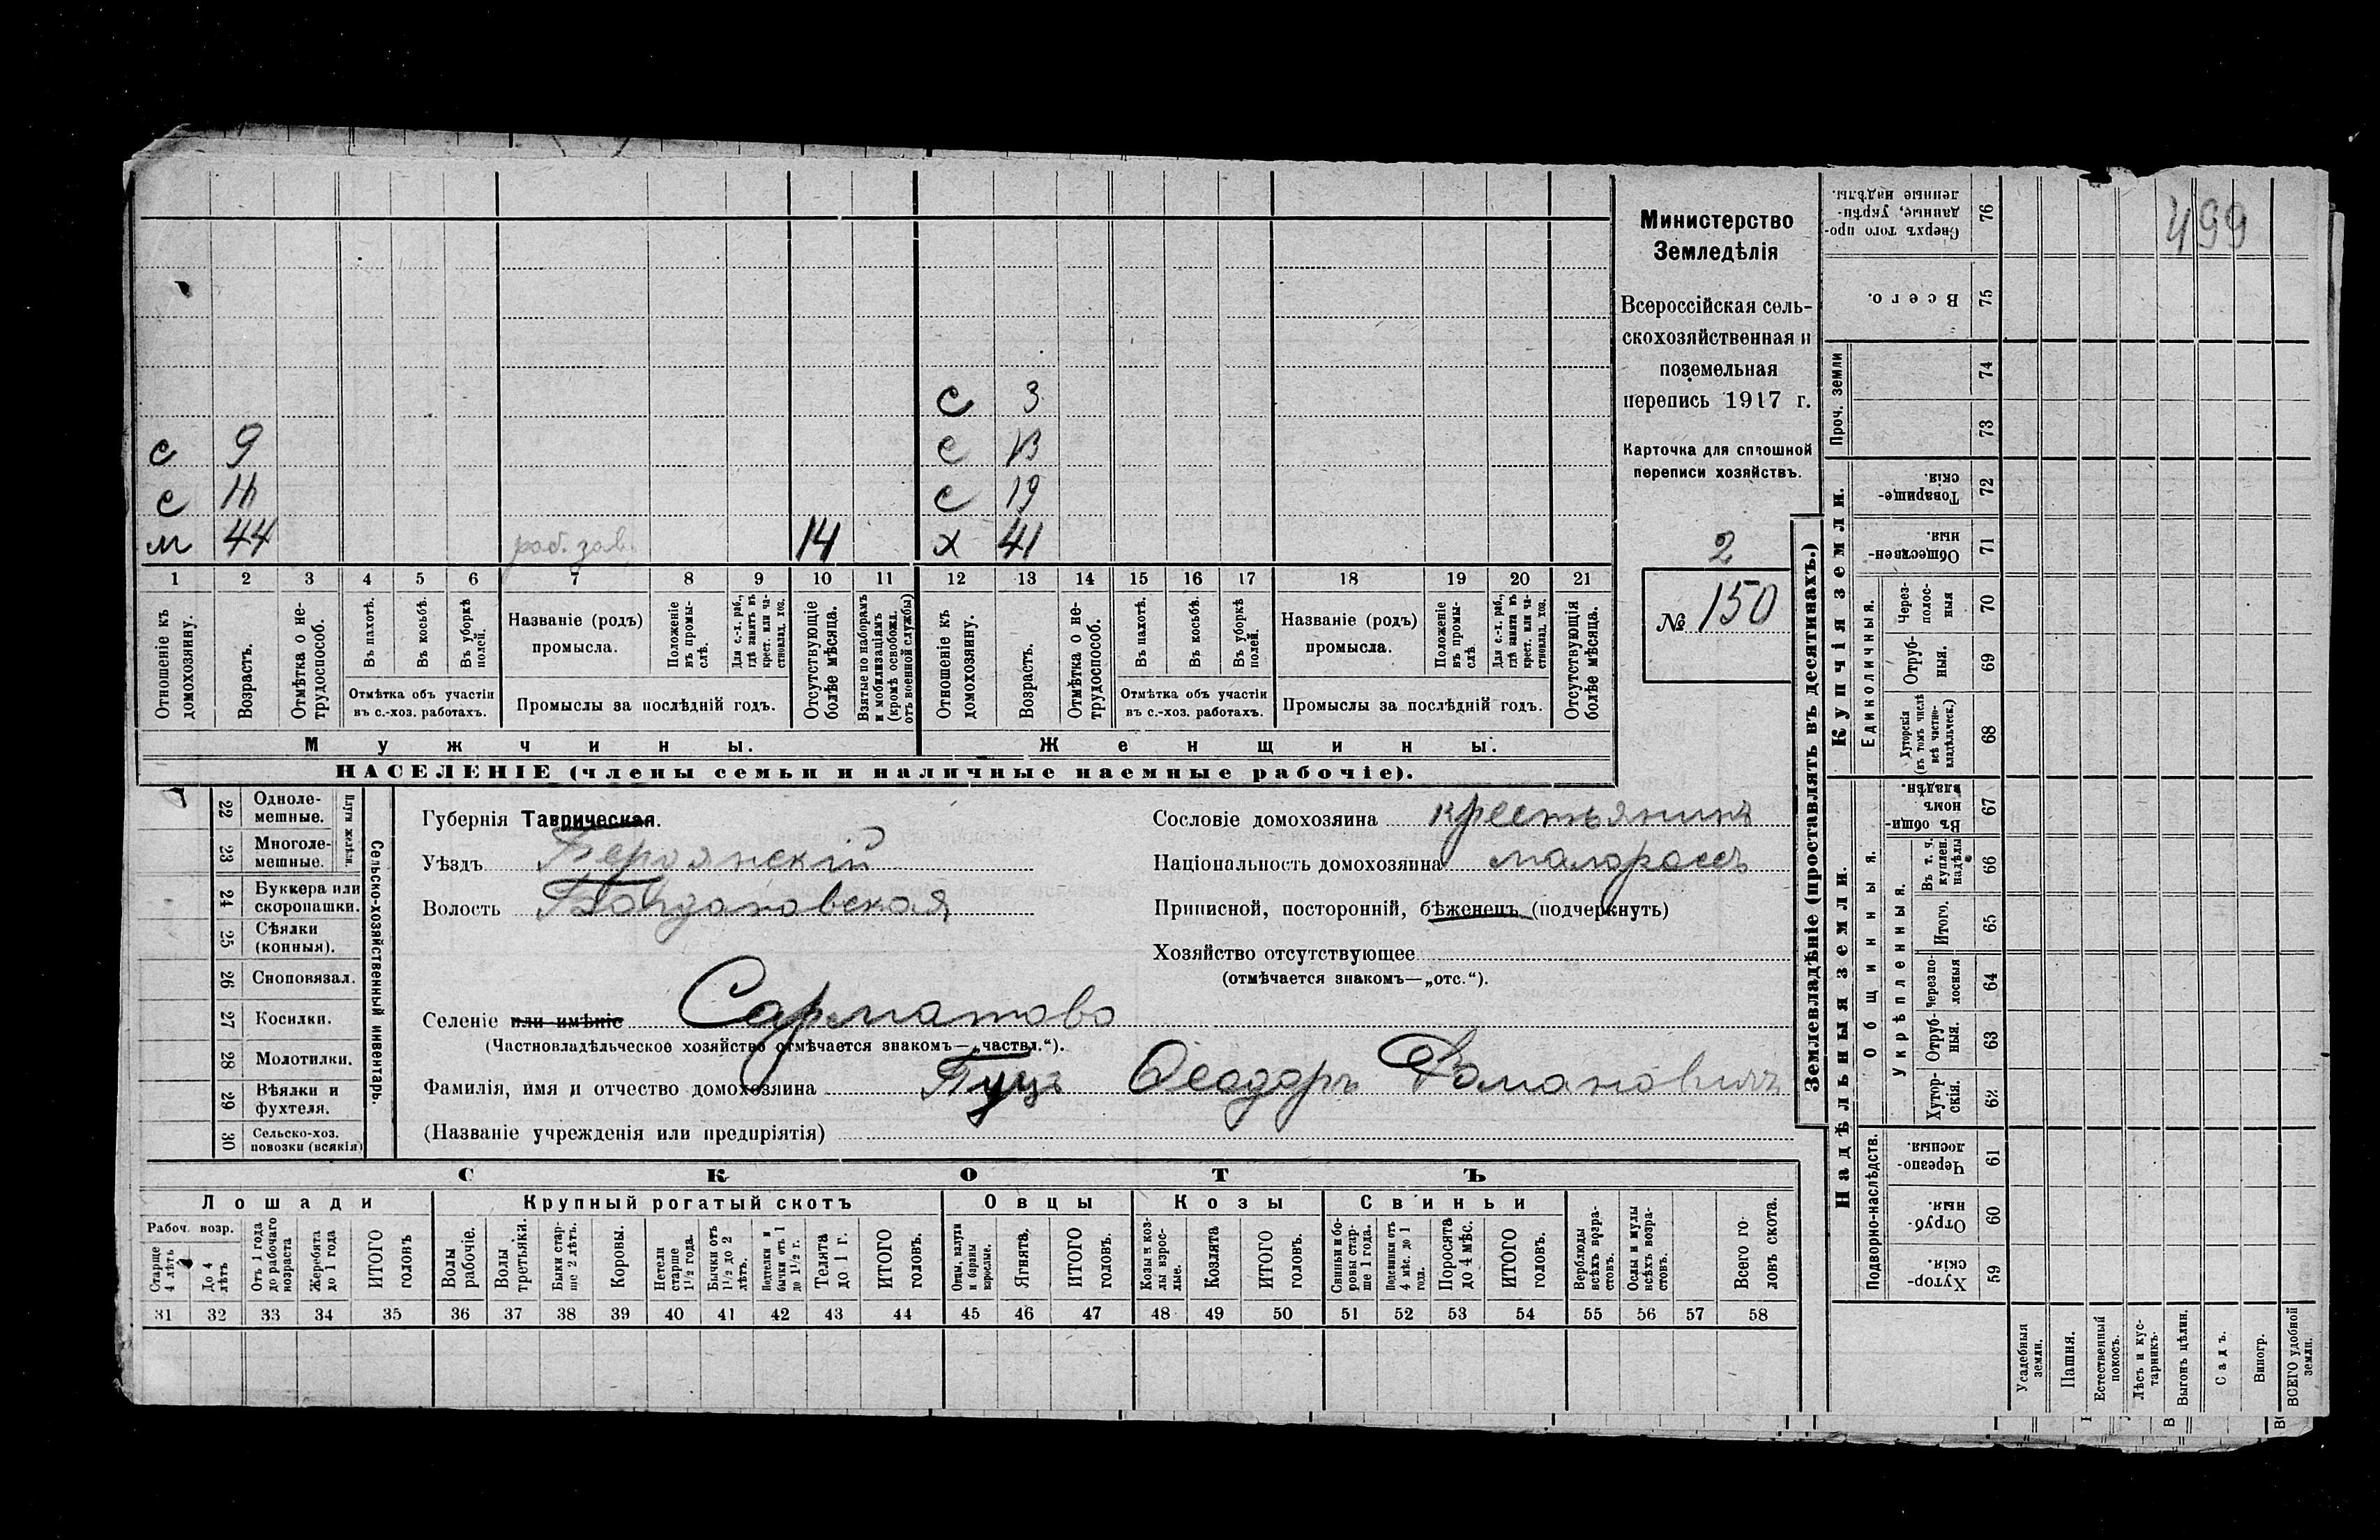 499
с 3
с 9 с 13
с с 19
м 44 раб. зав. 14 х 41
1 2 3 4 5 6 7 8 9 10 11 12 13 14 15 16 17 18 19 20 21
Отношеніе къ домохозяину.
Возрастъ.
Отмѣтка о не-
трудоспособ.
Въ пахотѣ.
Въ косьбѣ.
Въ уборкѣ
полей.
Отмѣтка объ участіи
въ с.-хоз. работахъ.
Названіе (родъ)
промысла.
Положеніе
въ промы-
слѣ.
Для с.-х. раб.,
гдѣ занятъ въ
крест. или ча-
стновлад. хоз.
Промыслы за послѣдній годъ.
Отсутствующіе
болѣе мѣсяца.
Взятые по наборамъ
и мобилизаціямъ
(кромѣ освобожд.
отъ военной службы)
Отношеніе къ
домохозяину.
Возрастъ.
Отмѣтка о не-
трудоспособ.
Въ пахотѣ.
Въ косьбѣ.
Въ уборкѣ
полей.
Отмѣтка объ участіи
въ с.-хоз. работахъ.
Названіе (родъ)
промысла.
Положеніе
въ промы-
слѣ.
Для с.-х. раб.,
гдѣ занята въ
крест. или ча-
стновлад. хоз.
Промыслы за послѣдній годъ.
Отсутствующія
болѣе мѣсяца.
Мужчины.
Женщины.
НАСЕЛЕНІЕ (члены семьи и наличные наемные рабочіе).
Министерство
Земледѣлія
Всероссійская сель-
скохозяйственная и
поземельная
перепись 1917 г.
Карточка для сплошной
переписи хозяйствъ.
2
№ 150
Сельско-хозяйственный инвентарь.
Плуги желѣзн.
22 Одноле-
мешные.
23 Многоле-
мешные.
24 Буккера или
скоропашки.
25 Сѣялки
(конныя).
26 Сноповязал.
27 Косилки.
28 Молотилки.
29 Вѣялки и
фухтеля.
30 Сельско-хоз.
повозки (всякія)
Губернія Таврическая.
Уѣздъ Бердянскій
Волость
Сословіе домохозяина крестьянинъ
Національность домохозяина малороссъ
Приписной, посторонній, бѣженецъ (подчеркнуть)
Хозяйство отсутствующее
(отмѣчается знакомъ—„отс.“).
Селеніе или имѣніе Сарматово
(Частновладѣльческое хозяйство отмѣчается знакомъ—„частвл.“).
Фамилія, имя и отчество домохозяина Пуцъ Ѳеодоръ Романовичъ
(Названіе учрежденія или предпріятія)
СКОТЪ
Лошади
Рабоч. возр.
Старше
4 лѣтъ
До 4
лѣтъ
Отъ 1 года
до рабочаго
возраста
Жеребята
до 1 года
ИТОГО
головъ
Крупный рогатый скотъ
Волы
рабочіе.
Волы
третьяки.
Быки стар-
ше 2 лѣтъ.
Коровы.
Нетели
старше
1½ года.
Бычки отъ
1½ до 2
лѣтъ.
Подтелки и
бычки отъ 1
до 1½ г.
Телята
до 1 г.
ИТОГО
головъ.
Овцы
Овцы, валухи
и бараны
взрослые.
Ягнята.
ИТОГО
головъ.
Козы
Козы и коз-
лы взрос-
лые.
Козлята
ИТОГО
головъ.
Свиньи
Свиньи и бо-
ровы стар-
ше 1 года.
Подсвинки отъ
4 мѣс. до 1
года.
Поросята
до 4 мѣс.
ИТОГО
головъ.
Верблюды
всѣхъ возра-
стовъ.
Ослы и мулы
всѣхъ возра-
стовъ.
Всего го-
ловъ скота.
31 32 33 34 35 36 37 38 39 40 41 42 43 44 45 46 47 48 49 50 51 52 53 54 55 56 57 58
Землевладѣніе (проставлять въ десятинахъ.)
Купчія земли.
Надѣльныя земли.
Сверхъ того про-
данные, укрѣп-
ленные надѣлы.
76
Всего.
75
Проч. земли
74
73
Товарище-
скія.
72
Обществен-
ныя.
71
Единоличныя.
Через-
полос-
ныя
70
Отруб-
ныя.
69
Хуторскія
(въ томъ числѣ
всѣ частно-
владѣльческ.)
68
Общинныя.
Въ общи-
номъ
владѣн.
67
Укрѣпленныя.
Въ т. ч.
куплен.
надѣлы
66
Итого.
65
Черезпо-
лосныя
64
Отруб-
ныя.
63
Хутор-
скія.
62
Подворно-наслѣдств.
Черезпо-
лосныя.
61
Отруб-
ныя.
60
Хутор-
скія.
59
Усадебныя
земли.
Пашня.
Естественный
покосъ.
Лѣсъ и кус-
тарникъ.
Выгонъ цѣлин.
Садъ.
Виногр.
ВСЕГО удобной
земли.